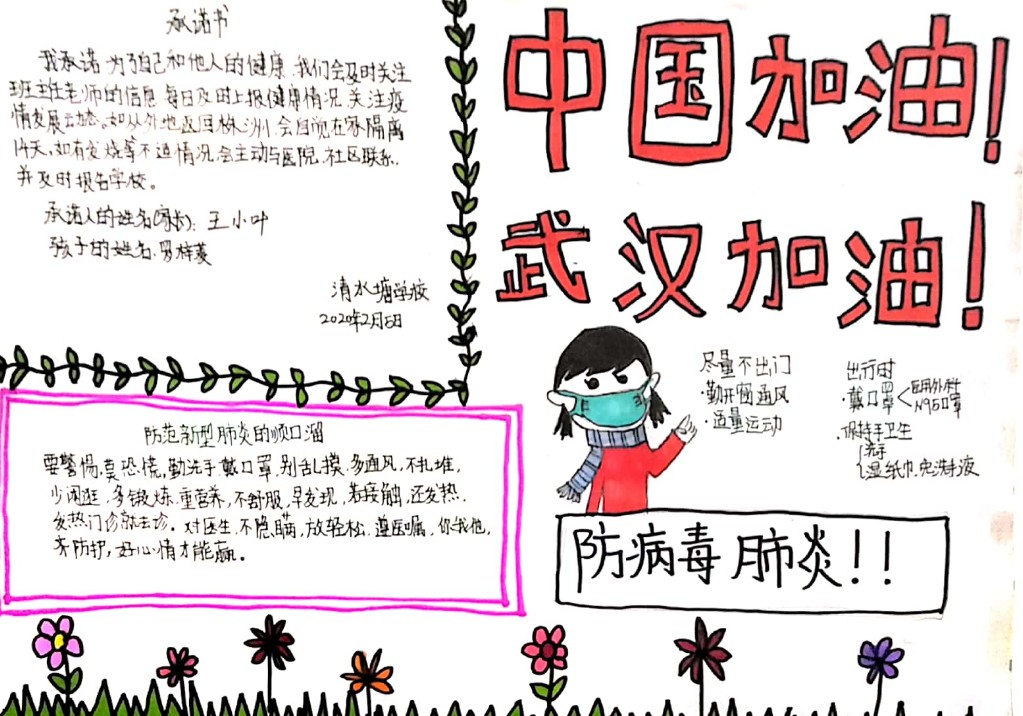 承诺书
我承诺为了自己和他人的健康,我们会及时关注
班主任老师的信息,每日及时上报健康情况,关注疫
情发展动态。如从外地返回株洲,会自觉在家隔离
14天,如有发烧等不适情况,会主动与医院,社区联系,
并及时报告学校。
承诺人的姓名(家长):王小叶
孩子的姓名:
清水塘学校
2020年2月5日
中国加油!
武汉加油!
尽量不出门
·勤开窗通风
·适量运动
出行时
·戴口罩<医用外科
N95口罩
·保持手卫生
洗手
湿纸巾.免洗手液
防范新型肺炎的顺口溜
要警惕,莫恐慌,勤洗手,戴口罩,别乱摸,多通风,不扎堆,
少闲逛,多锻炼,重营养,不舒服,早发现,若接触,还发热,
发热门诊就去诊。对医生,不隐瞒,放轻松,遵医嘱,你我他,
齐防护,好心情才能赢。
防病毒肺炎!!